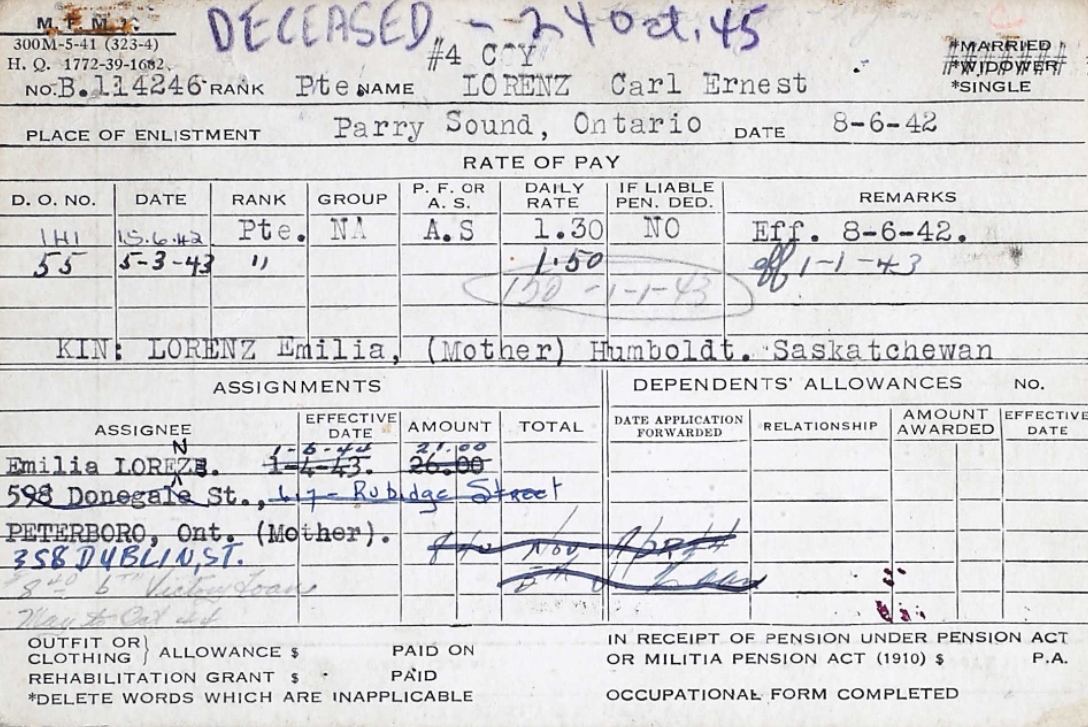 M. F. M.
DECEASED - 24 Oct. 45
300M-5-41 (323-4)
#4 COY
H. Q. 1772-39-1682
*MARRIED
*WIDOWER
*SINGLE
NO. B.114246 RANK Pte. NAME LORENZ Carl Ernest
PLACE OF ENLISTMENT Parry Sound, Ontario DATE 8-6-42
RATE OF PAY
D. O. NO. DATE RANK GROUP P. F. OR A. S. DAILY RATE IF LIABLE PEN. DED. REMARKS
141 15.6.42 Pte. NA A.S 1.30 NO Eff. 8-6-42.
55 5-3-43 " 1.50 eff 1-1-43
150 -1-1-43
KIN: LORENZ Emilia, (Mother) Humboldt. Saskatchewan
ASSIGNMENTS DEPENDENTS' ALLOWANCES NO.
ASSIGNEE EFFECTIVE DATE AMOUNT TOTAL DATE APPLICATION FORWARDED RELATIONSHIP AMOUNT AWARDED EFFECTIVE DATE
N 1-6-44 21.00
Emilia LOREZE. 1-4-43. 26.00
598 Donegale St., 617 - Rubidge Street
PETERBORO, Ont. (Mother).
358 DUBLIN, ST. Nov
6th Victory Loan
May to Oct 44
OUTFIT OR CLOTHING } ALLOWANCE $ PAID ON
REHABILITATION GRANT $ PAID
*DELETE WORDS WHICH ARE INAPPLICABLE
IN RECEIPT OF PENSION UNDER PENSION ACT
OR MILITIA PENSION ACT (1910) $ P.A.
OCCUPATIONAL FORM COMPLETED